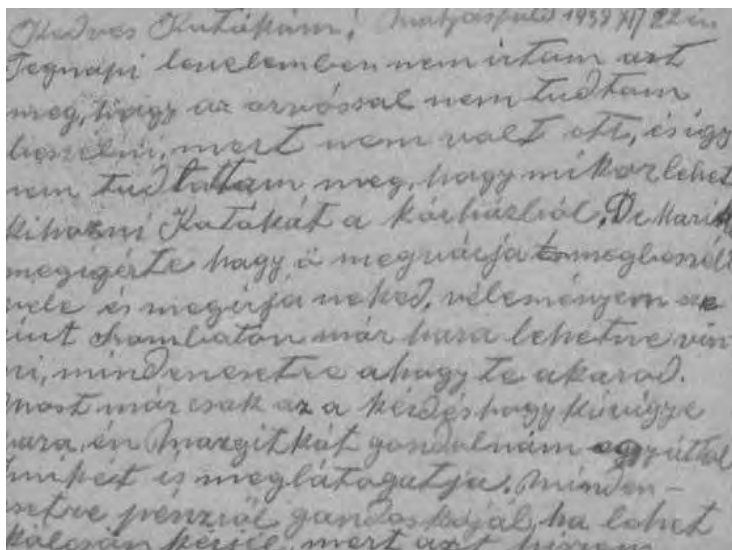 Kedves Katókám! Mátyásföld 1938 XI/22 én
Tegnapi levelemben nem irtam azt
meg, hogy az orvossal nem tudtam
beszélni, mert nem valt ott, és igy
nem tudtattam meg, hogy mikor lehet
kihozni Katókát a kórházból. Dr Marik
megigérte hogy ő megvárja megbeszéli
vele és megirja neked. véleményem sze
rint szombaton már haza lehetne vin
ni, mindenesetre ahogy te akarod.
Most már csak az a kérdés hogy ki vigye
haza, én Margitkát gondolnám egyúttal
minket is meglátogatja. Minden-
esetre pénzről gondoskojál, ha lehet
kölcsön kérjél, mert azt